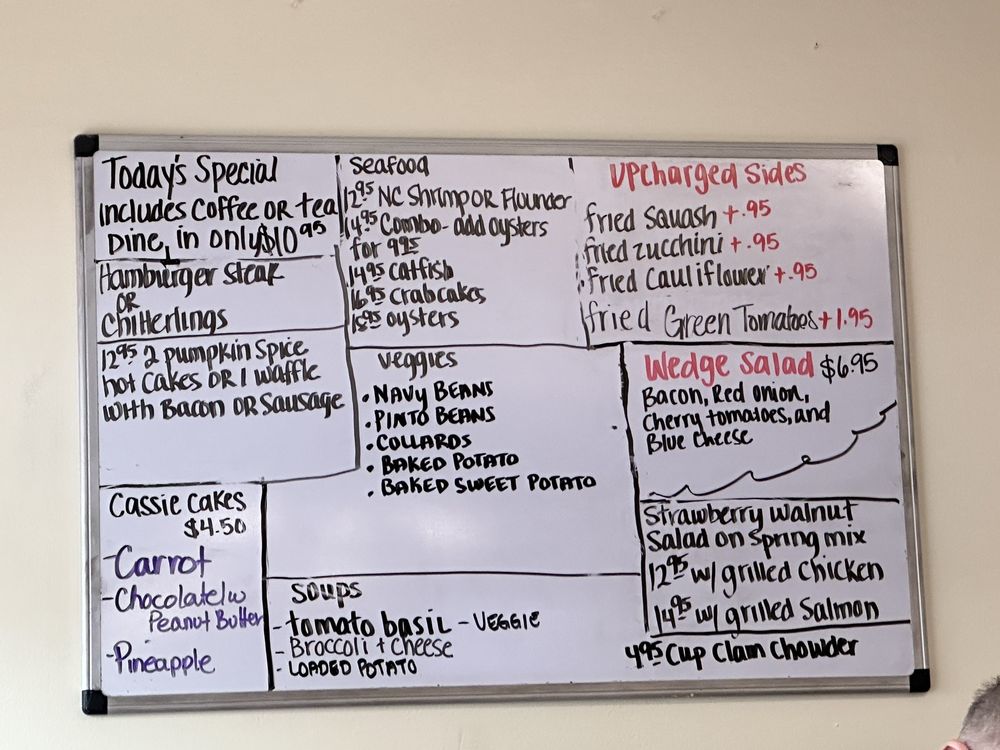 Today's Special
includes Coffee OR tea
Dine, in only $10 95
Hamburger Steak
OR
Chitterlings
12 95 2 pumpkin Spice
hot Cakes OR 1 Waffle
with Bacon OR Sausage
Cassie Cakes
$4.50
-Carrot
-Chocolate/w
Peanut Butter
-Pineapple
Seafood
12 95 NC Shrimp OR Flounder
14 95 Combo - add oysters
for 9 95
14 95 Catfish
16 95 Crabcakes
oysters
Veggies
• NAVY BEANS
• PINTO BEANS
• COLLARDS
• BAKED POTATO
• BAKED SWEET POTATO
Soups
- tomato basil - VEGGIE
- Broccoli + Cheese
- LOADED POTATO
UPcharged Sides
fried Squash +.95
fried zucchini +.95
fried Cauliflower +.95
fried Green Tomatoes +1.95
Wedge Salad $6.95
Bacon, Red onion,
Cherry tomatoes, and
Blue Cheese
Strawberry Walnut
Salad on Spring mix
12 95 w/ grilled Chicken
14 95 w/ grilled Salmon
4 95 Cup Clam Chowder